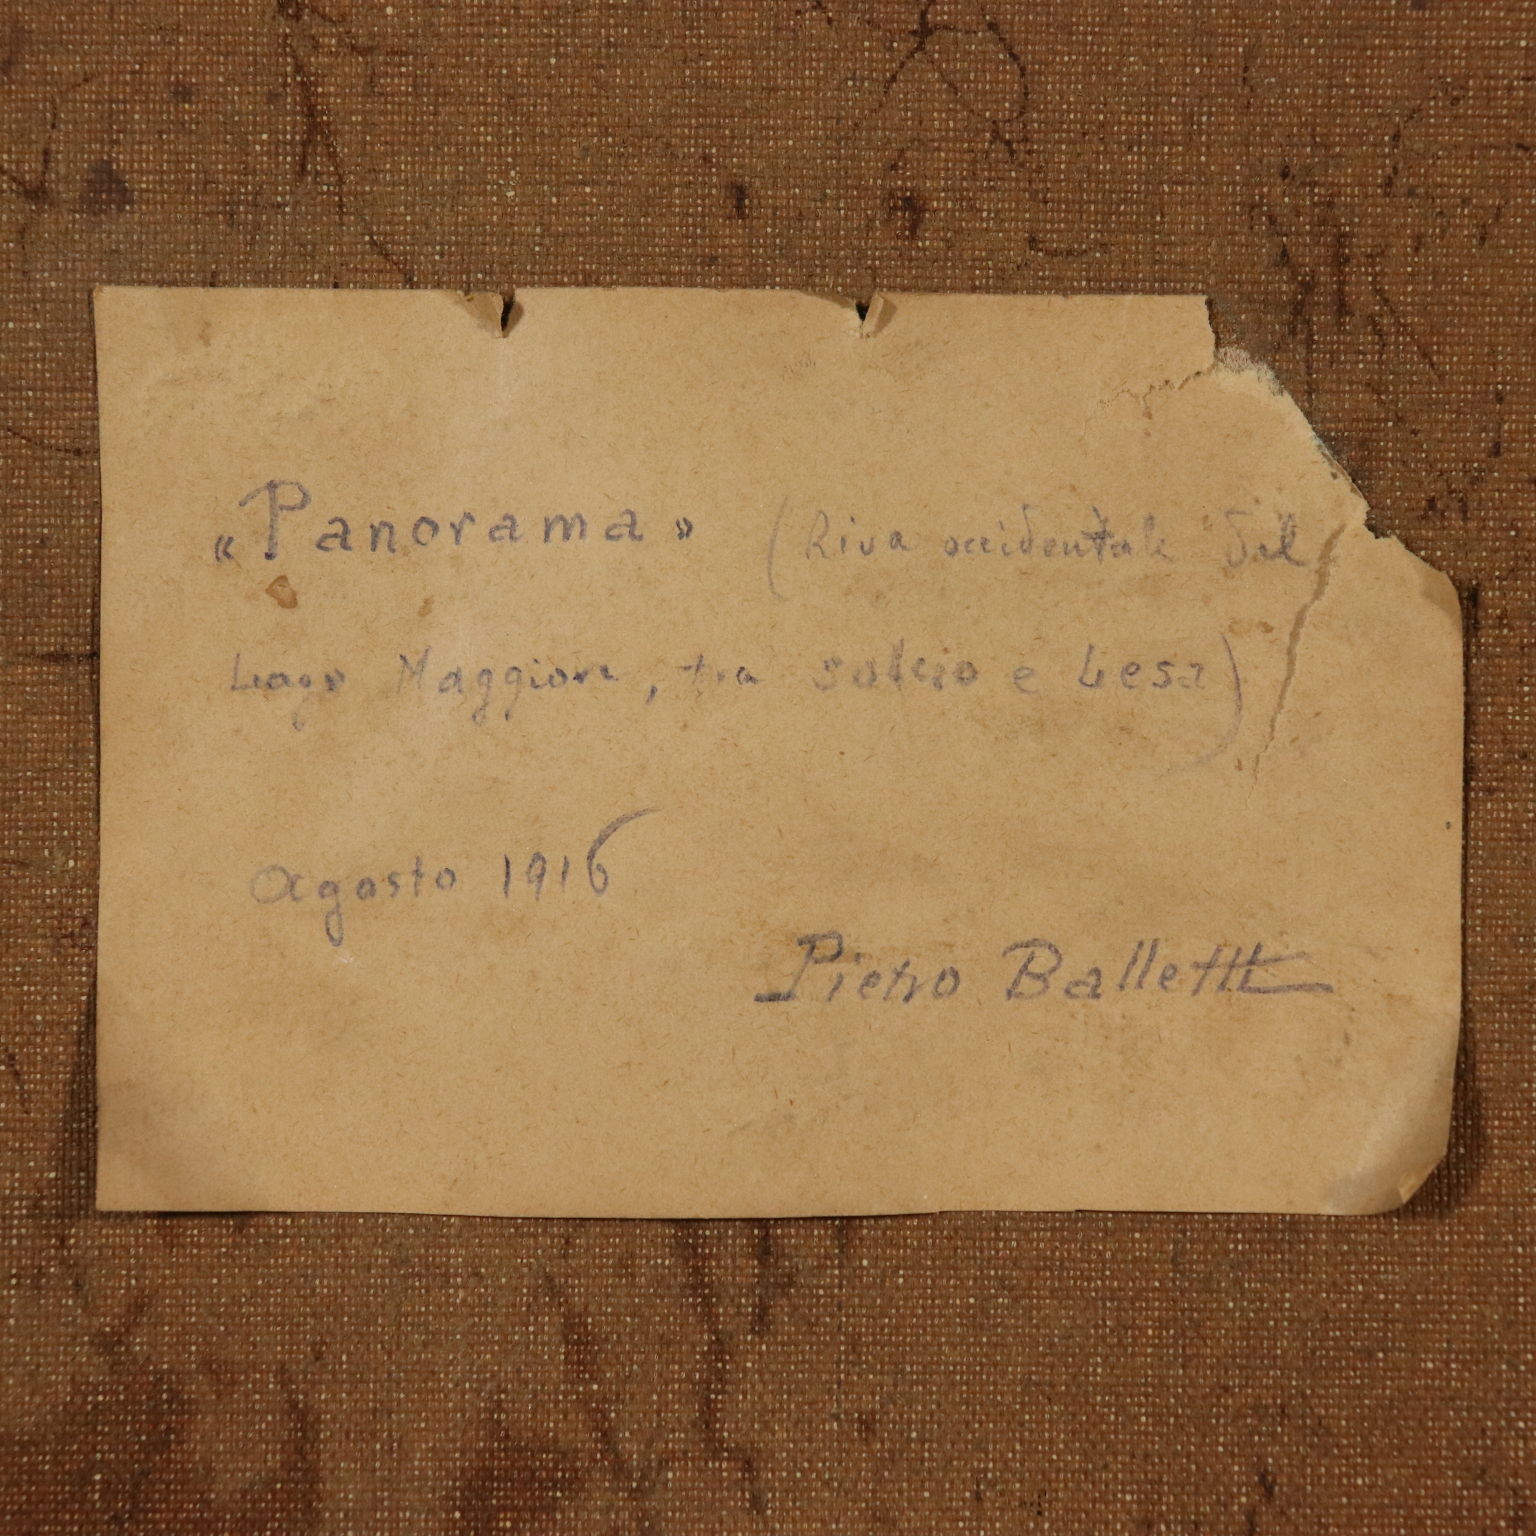 « Panorama » (Riva occidentale del
Lago Maggiore, tra Solcio e Lesa)
Agosto 1916
Pietro Balletti